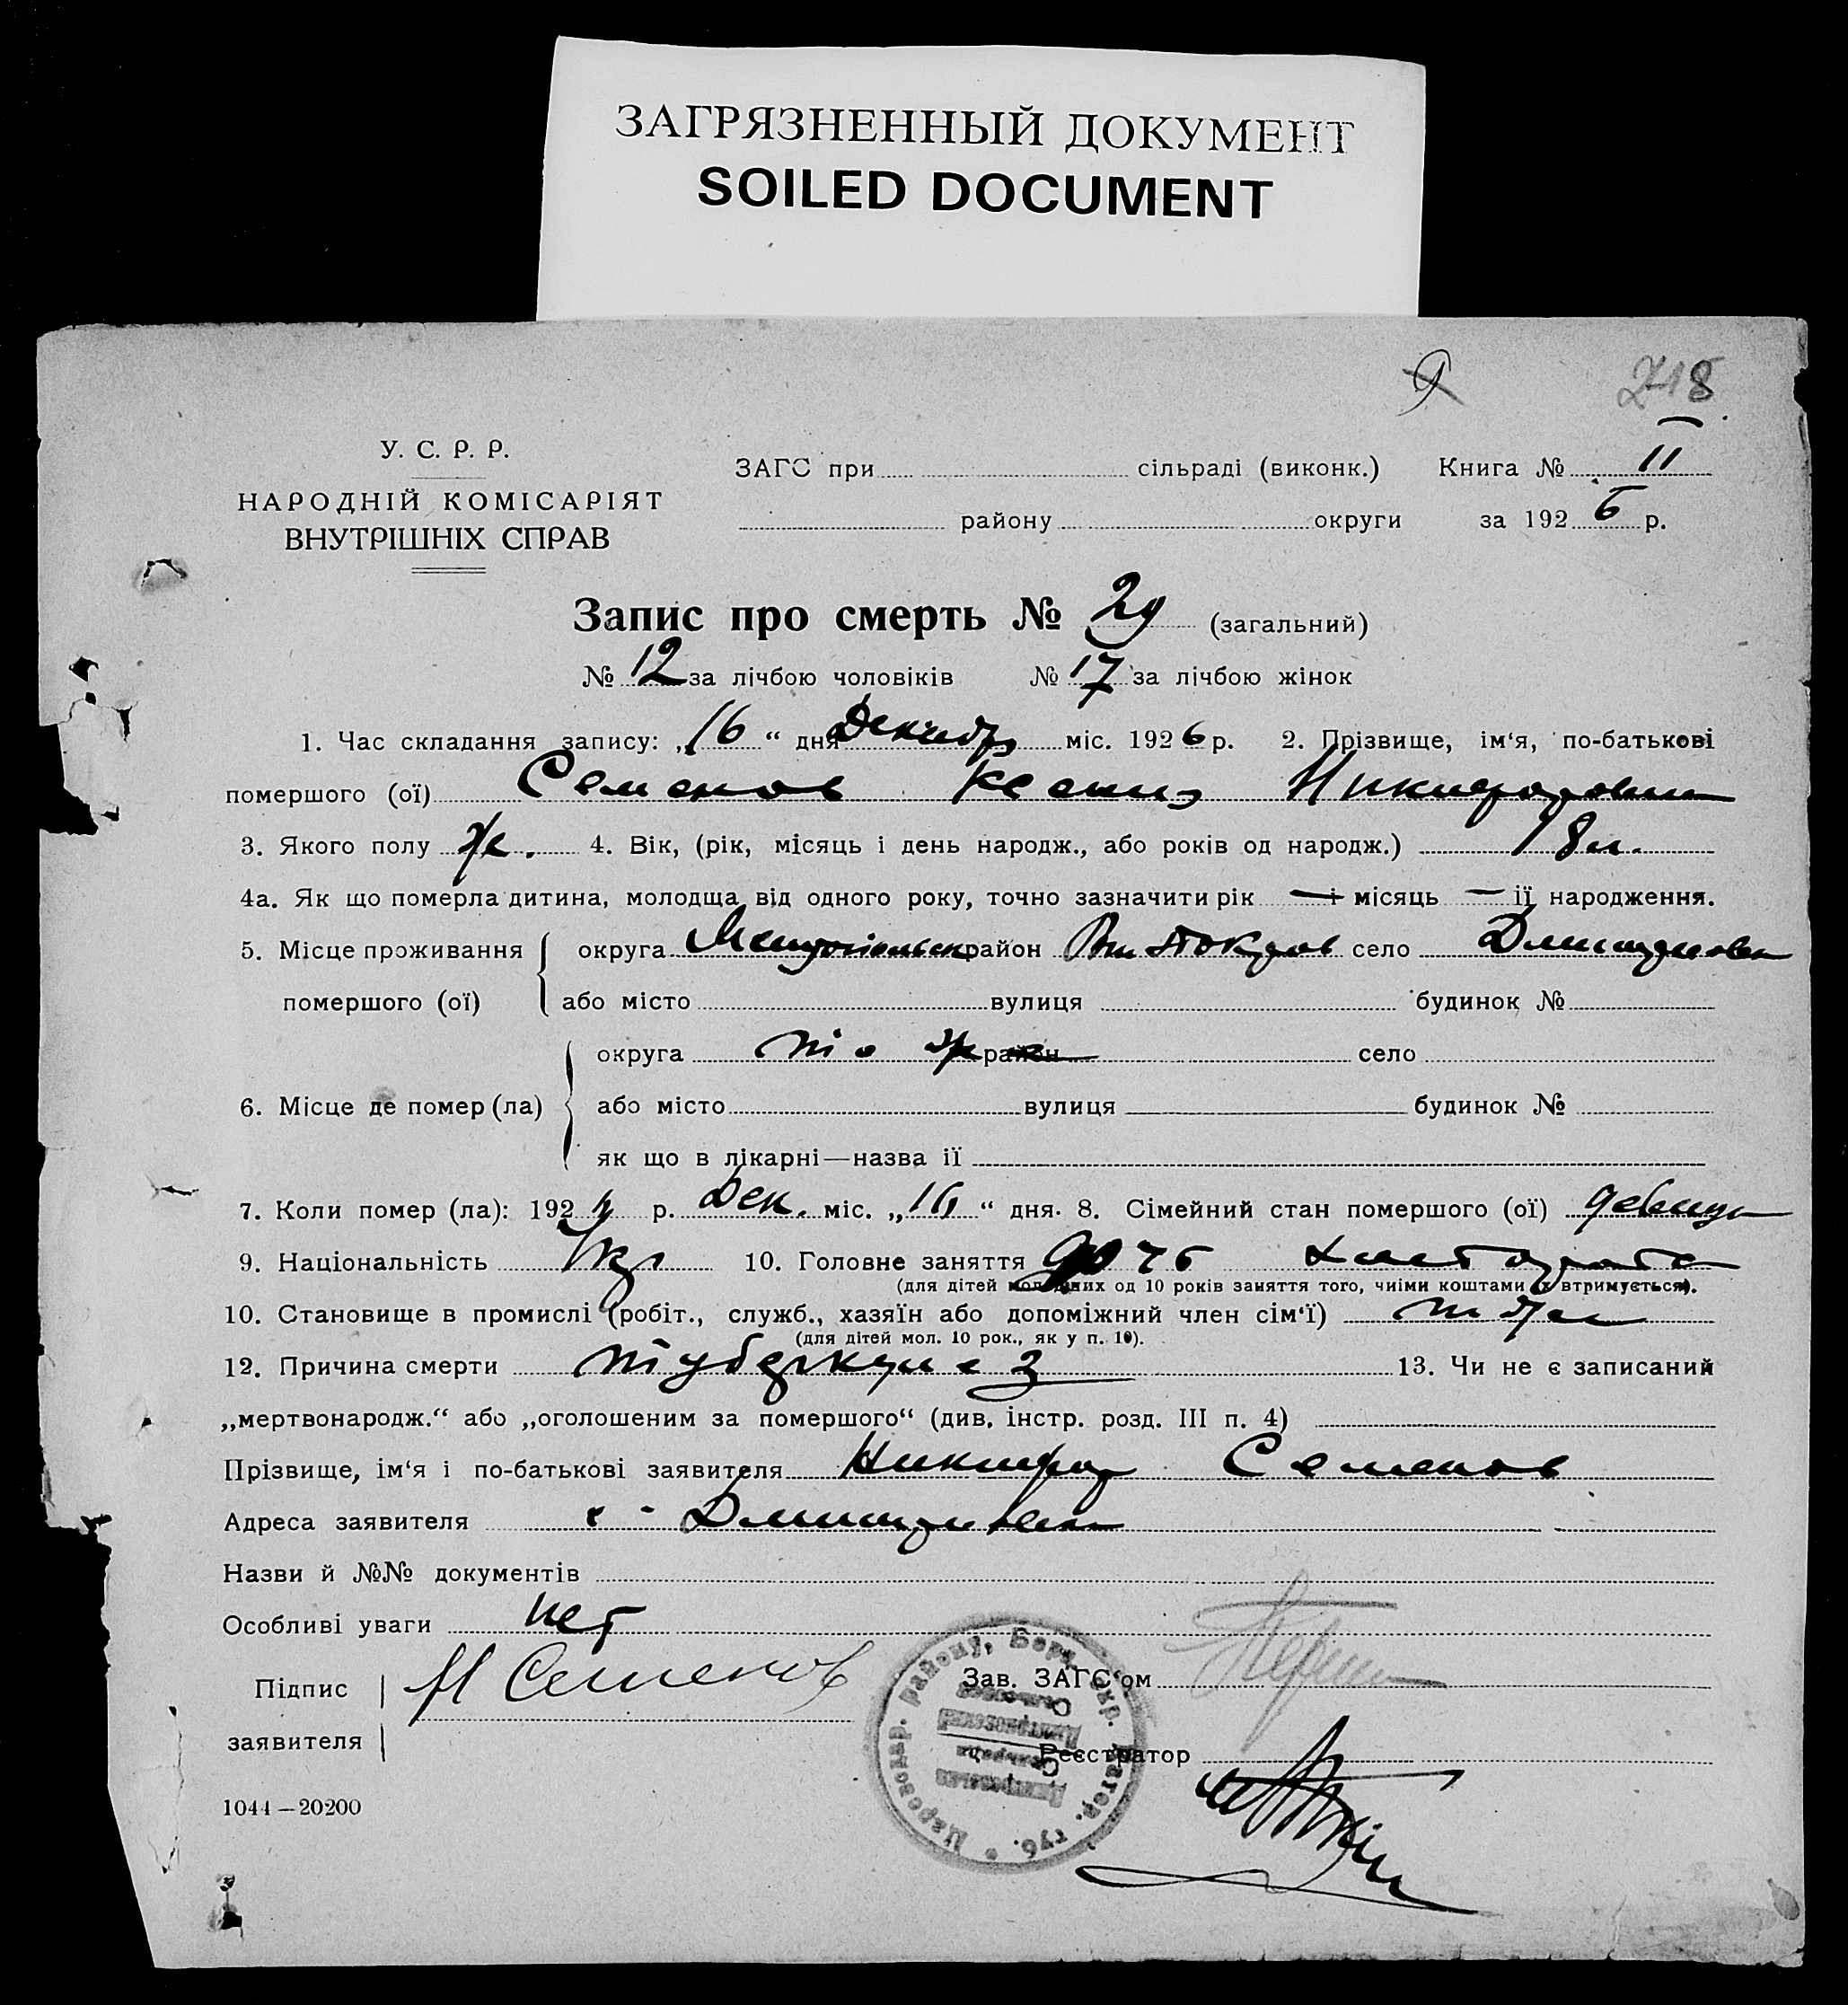 ЗАГРЯЗНЕННЫЙ ДОКУМЕНТ
SOILED DOCUMENT
9 218
У. С. Р. Р.
НАРОДНІЙ КОМІСАРІЯТ
ВНУТРІШНІХ СПРАВ
ЗАГС при сільраді (виконк.) Книга № II
району округи за 1926 р.
Запис про смерть № 29 (загальний)
№ 12 за лічбою чоловіків № 17 за лічбою жінок
1. Час складання запису: „16“ дня Декабр міс. 1926 р. 2. Прізвище, ім‘я, по-батькові
помершого (ої) Семенов Ксения
3. Якого полу ж. 4. Вік, (рік, місяць і день народж., або років од народж.) 18 л.
4а. Як що померла дитина, молодща від одного року, точно зазначити рік — і місяць — ії народження.
5. Місце проживання округа район село
помершого (ої) або місто вулиця будинок №
округа то же район село
6. Місце де помер (ла) або місто вулиця будинок №
як що в лікарні—назва ії
7. Коли помер (ла): 192 р. Дек. міс. „16“ дня. 8. Сімейний стан помершого (ої) девица
9. Національність Укр 10. Головне заняття
(для дітей молодших од 10 років заняття того, чиїми коштами їх втримується).
10. Становище в промислі (робіт., служб., хазяїн або допоміжний член сім‘ї)
(для дітей мол. 10 рок., як у п. 10).
12. Причина смерти туберкулез 13. Чи не є записаний
„мертвонародж.“ або „оголошеним за помершого“ (див. інстр. розд. III п. 4)
Прізвище, ім‘я і по-батькові заявителя Никифор Семенов
Адреса заявителя
Назви й №№ документів
Особливі уваги нет
Підпис Н Семенов Зав. ЗАГС‘ом
заявителя Реєстратор
1044—20200